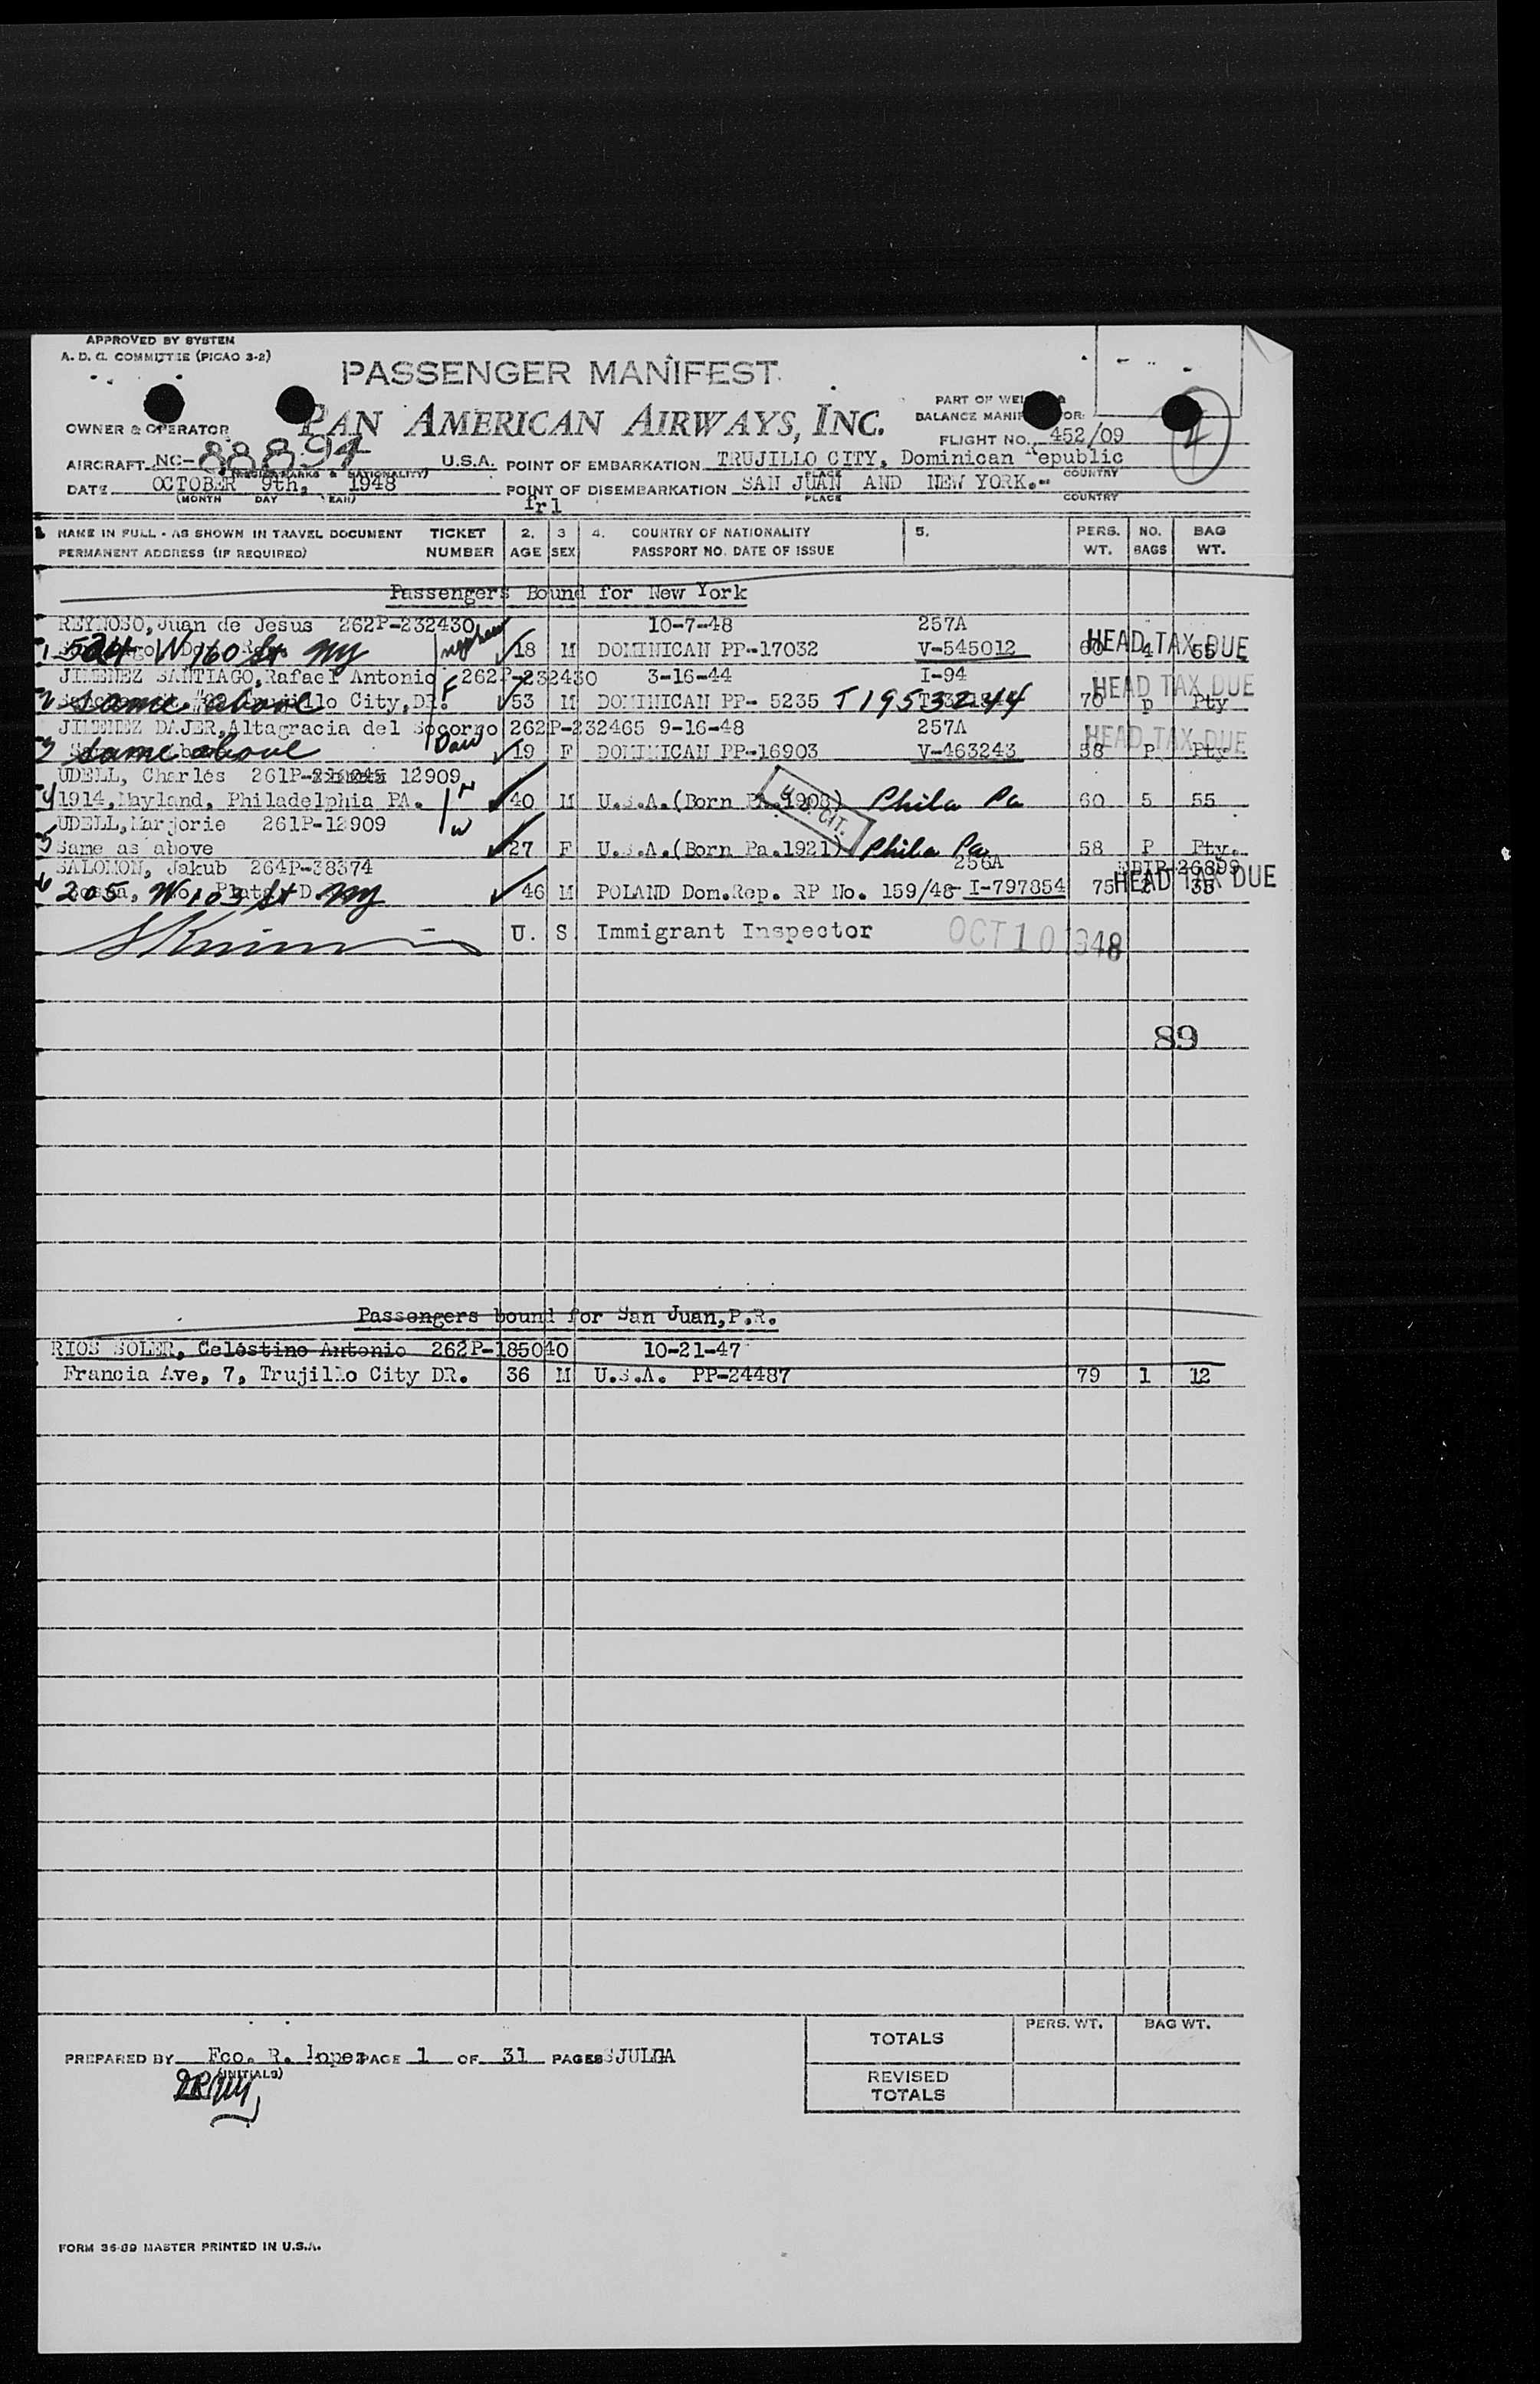 APPROVED BY SYSTEM
A. D. C. COMMITTEE (PICAO 3-2)
PASSENGER MANIFEST
PAN AMERICAN AIRWAYS, INC.
OWNER & OPERATOR
PART OF
BALANCE
FLIGHT NO. 452/09
AIRCRAFT NC-88894 U.S.A. POINT OF EMBARKATION TRUJILLO CITY, Dominican Republic
& NATIONALITY) PLACE COUNTRY
DATE OCTOBER 9th, 1948 POINT OF DISEMBARKATION SAN JUAN AND NEW YORK.-
(MONTH DAY YEAR) PLACE COUNTRY
frl
NAME IN FULL - AS SHOWN IN TRAVEL DOCUMENT TICKET 2. 3 4. COUNTRY OF NATIONALITY 5. PERS. NO. BAG
PERMANENT ADDRESS (IF REQUIRED) NUMBER AGE SEX PASSPORT NO. DATE OF ISSUE WT. BAGS WT.
Passengers Bound for New York
REYNOSO, Juan de Jesus 262P-232430 10-7-48 257A
1 524 W 160 St NY nephew 18 M DOMINICAN PP-17032 V-545012 60 4 55 HEAD TAX DUE
JIMENEZ SANTIAGO, Rafael Antonio 262P-232430 3-16-44 I-94
2 same above Trujillo City, DR. F 53 M DOMINICAN PP- 5235 T1953244 70 p Pty HEAD TAX DUE
JIMENEZ DAJER, Altagracia del Socorro 262P-232465 9-16-48 257A
3 same above Dau 19 F DOMINICAN PP-16903 V-463243 58 P Pty. HEAD TAX DUE
UDELL, Charles 261P- 12909
4 1914, Mayland, Philadelphia PA. H 40 M U.S.A.(Born Pa.1908) U.S. CIT. Phila Pa 60 5 55
UDELL, Marjorie 261P-12909
5 Same as above W 27 F U.S.A.(Born Pa.1921) Phila Pa 58 P Pty.
SALOMON, Jakub 264P-38374 256A 26899
6 205 W 103 St NY 46 M POLAND Dom.Rep. RP No. 159/48 I-797854 75 2 35 HEAD TAX DUE
U. S Immigrant Inspector OCT 10 1948
89
Passengers bound for San Juan, P.R.
RIOS SOLER, Celestino Antonio 262P-185040 10-21-47
Francia Ave, 7, Trujillo City DR. 36 M U.S.A. PP-24487 79 1 12
PERS. WT. BAG WT.
TOTALS
PREPARED BY Fco. R. Lopez PAGE 1 OF 31 PAGES SJULGA
(INITIALS)
REVISED
TOTALS
FORM 36-89 MASTER PRINTED IN U.S.A.